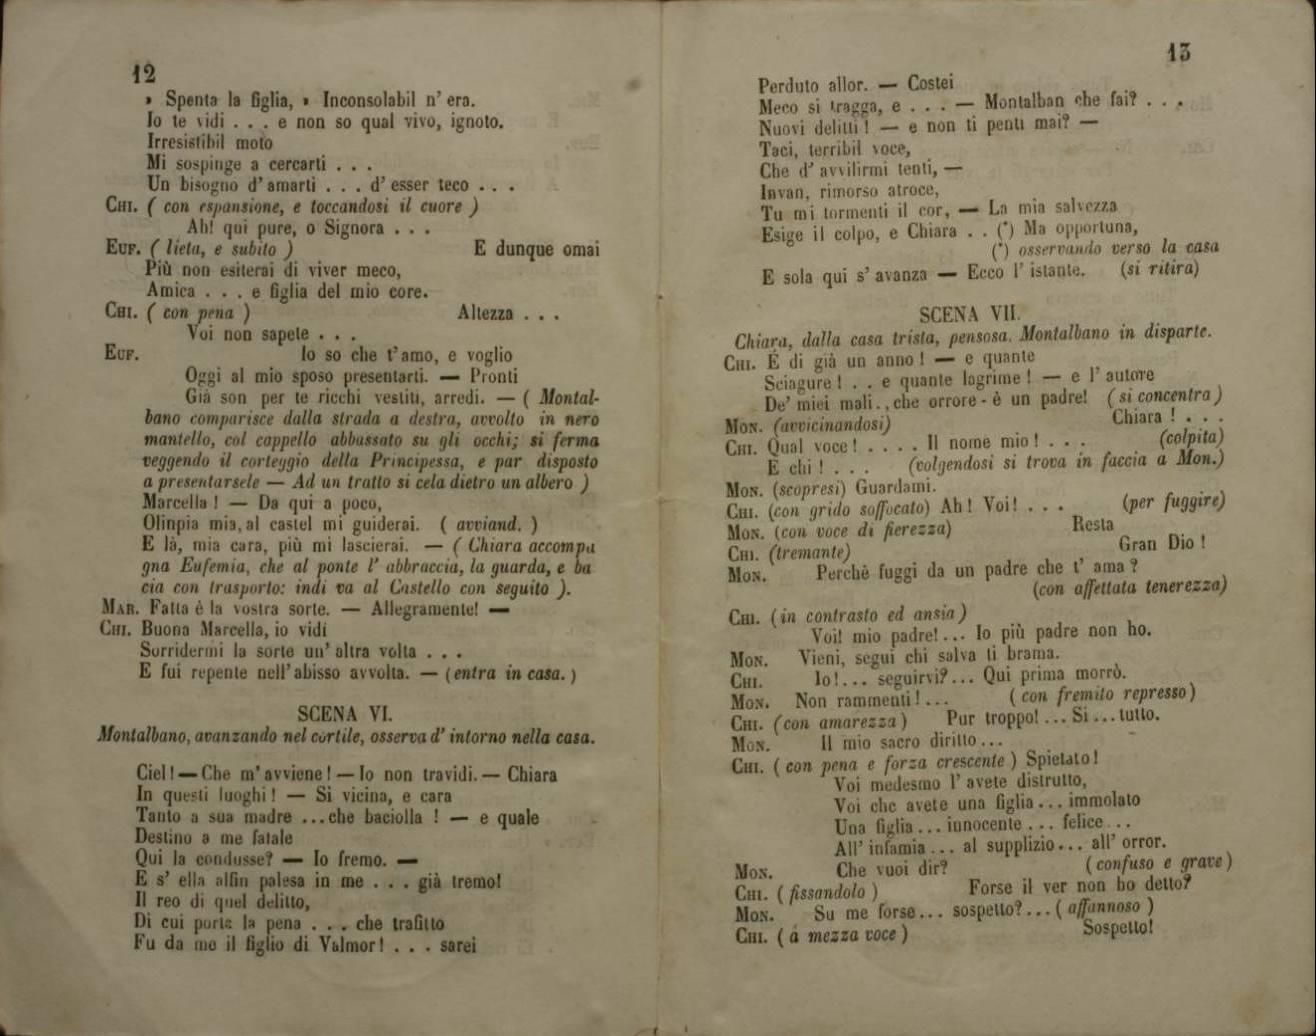 12
» Spenta la figlia, » Inconsolabil n' era.
Io te vidi . . . e non so qual vivo, ignoto.
Irresistibil moto
Mi sospinge a cercarti . . .
Un bisogno d' amarti . . . d' esser teco . . .
CHI. ( con espansione, e toccandosi il cuore )
Ah! qui pure, o Signora . . .
EUF. ( lieta, e subito ) E dunque omai
Più non esiterai di viver meco,
Amica . . . e figlia del mio core.
CHI. ( con pena ) Altezza . . .
Voi non sapete . . .
EUF. Io so che t' amo, e voglio
Oggi al mio sposo presentarti. — Pronti
Già son per te ricchi vestiti, arredi. — ( Montal-
bano comparisce dalla strada a destra, avvolto in nero
mantello, col cappello abbassato su gli occhi; si ferma
veggendo il corteggio della Principessa, e par disposto
a presentarsele — Ad un tratto si cela dietro un albero )
Marcella ! — Da qui a poco,
Olinpia mia, al castel mi guiderai. ( avviand. )
E là, mia cara, più mi lascierai. — ( Chiara accompa
gna Eufemia, che al ponte l' abbraccia, la guarda, e ba
cia con trasporto: indi va al Castello con seguito ).
MAR. Fatta è la vostra sorte. — Allegramente! —
CHI. Buona Marcella, io vidi
Sorridermi la sorte un' altra volta . . .
E fui repente nell' abisso avvolta. — ( entra in casa. )
SCENA VI.
Montalbano, avanzando nel cortile, osserva d' intorno nella casa.
Ciel ! — Che m' avviene ! — Io non travidi. — Chiara
In questi luoghi ! — Si vicina, e cara
Tanto a sua madre ... che baciolla ! — e quale
Destino a me fatale
Qui la condusse? — Io fremo. —
E s' ella alfin palesa in me . . . già tremo!
Il reo di quel delitto,
Di cui porta la pena . . . che trafitto
Fu da me il figlio di Valmor! . . . sarei
13
Perduto allor. — Costei
Meco si tragga, e . . . — Montalban che fai? . . .
Nuovi delitti ! — e non ti penti mai? —
Taci, terribil voce,
Che d' avvilirmi tenti, —
Invan, rimorso atroce,
Tu mi tormenti il cor, — La mia salvezza
Esige il colpo, e Chiara . . (*) Ma opportuna,
(*) osservando verso la casa
E sola qui s' avanza — Ecco l' istante. (si ritira)
SCENA VII.
Chiara, dalla casa trista, pensosa. Montalbano in disparte.
CHI. È di già un anno ! — e quante
Sciagure ! . . e quante lagrime ! — e l' autore
De' miei mali . , che orrore - è un padre! ( si concentra )
MON. (avvicinandosi) Chiara ! . . .
CHI. Qual voce ! . . . . Il nome mio ! . . . (colpita)
E chi ! . . . (volgendosi si trova in faccia a Mon.)
MON. (scopresi) Guardami.
CHI. (con grido soffocato) Ah! Voi! . . . (per fuggire)
MON. (con voce di fierezza) Resta
CHI. (tremante) Gran Dio !
MON. Perchè fuggi da un padre che t' ama ?
(con affettata tenerezza)
CHI. ( in contrasto ed ansia )
Voi! mio padre!... Io più padre non ho.
MON. Vieni, segui chi salva ti brama.
CHI. Io!... seguirvi?... Qui prima morrò.
MON. Non rammenti !... ( con fremito represso )
CHI. ( con amarezza ) Pur troppo! ... Si ... tutto.
MON. Il mio sacro diritto ...
CHI. ( con pena e forza crescente ) Spietato !
Voi medesmo l' avete distrutto,
Voi che avete una figlia ... immolato
Una figlia ... innocente ... felice ...
All' infamia ... al supplizio ... all' orror.
MON. Che vuoi dir? ( confuso e grave )
CHI. ( fissandolo ) Forse il ver non ho detto?
MON. Su me forse ... sospetto? ... ( affannoso )
CHI. ( a mezza voce ) Sospetto!